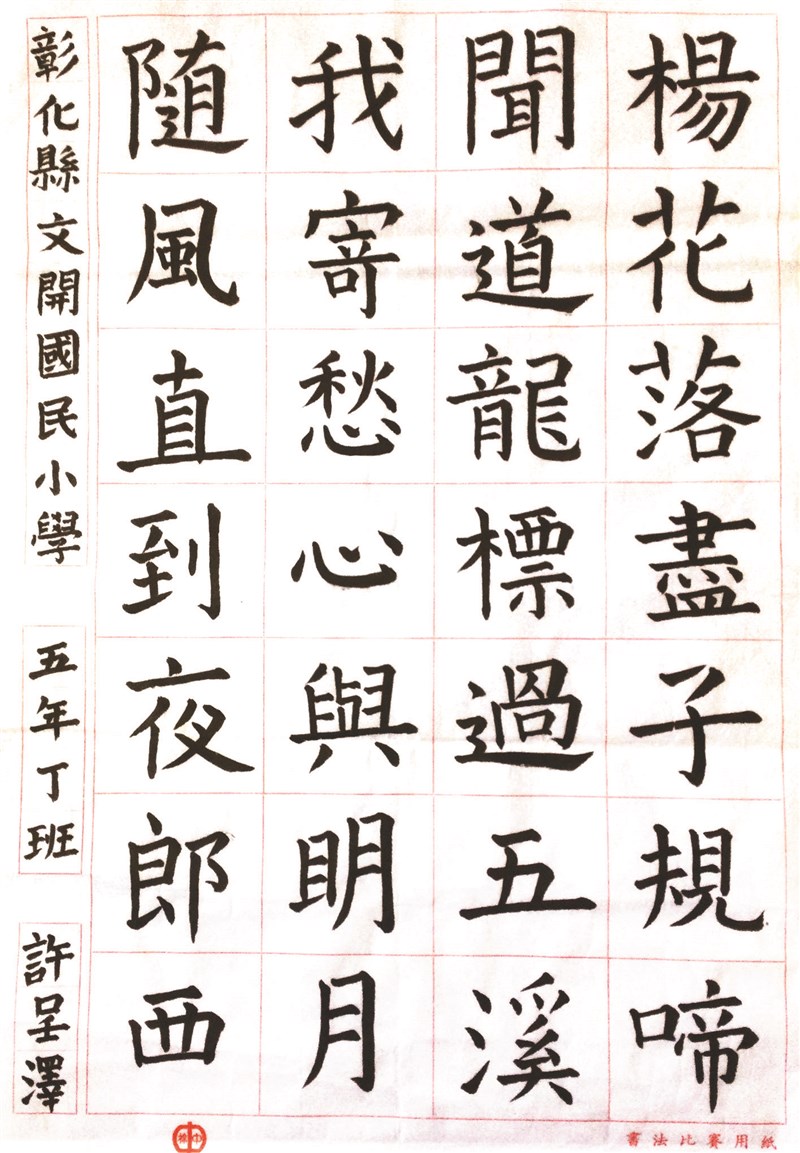 楊花落盡子規啼
聞道龍標過五溪
我寄愁心與明月
随風直到夜郎西
彰化縣文開國民小學
五年丁班
許呈澤
書法比賽用紙